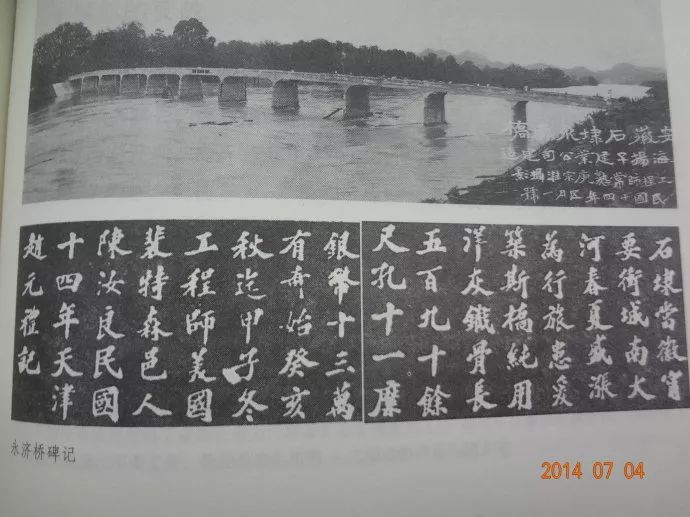 安徽石埭永濟橋
上海揚子建業公司建造
工程師常熟宗攝影
民國十四年月一號
石埭當徽甯
要衝城南大
河春夏盛漲
為行旅患爰
築斯橋純用
洋灰鐵骨長
五百九十餘
尺孔十一糜
銀幣十三萬
有奇始癸亥
秋迄甲子冬
工程師美國
裴特森邑人
陳汝良民國
十四年天津
趙元禮記
永济桥碑记
2014 07 04